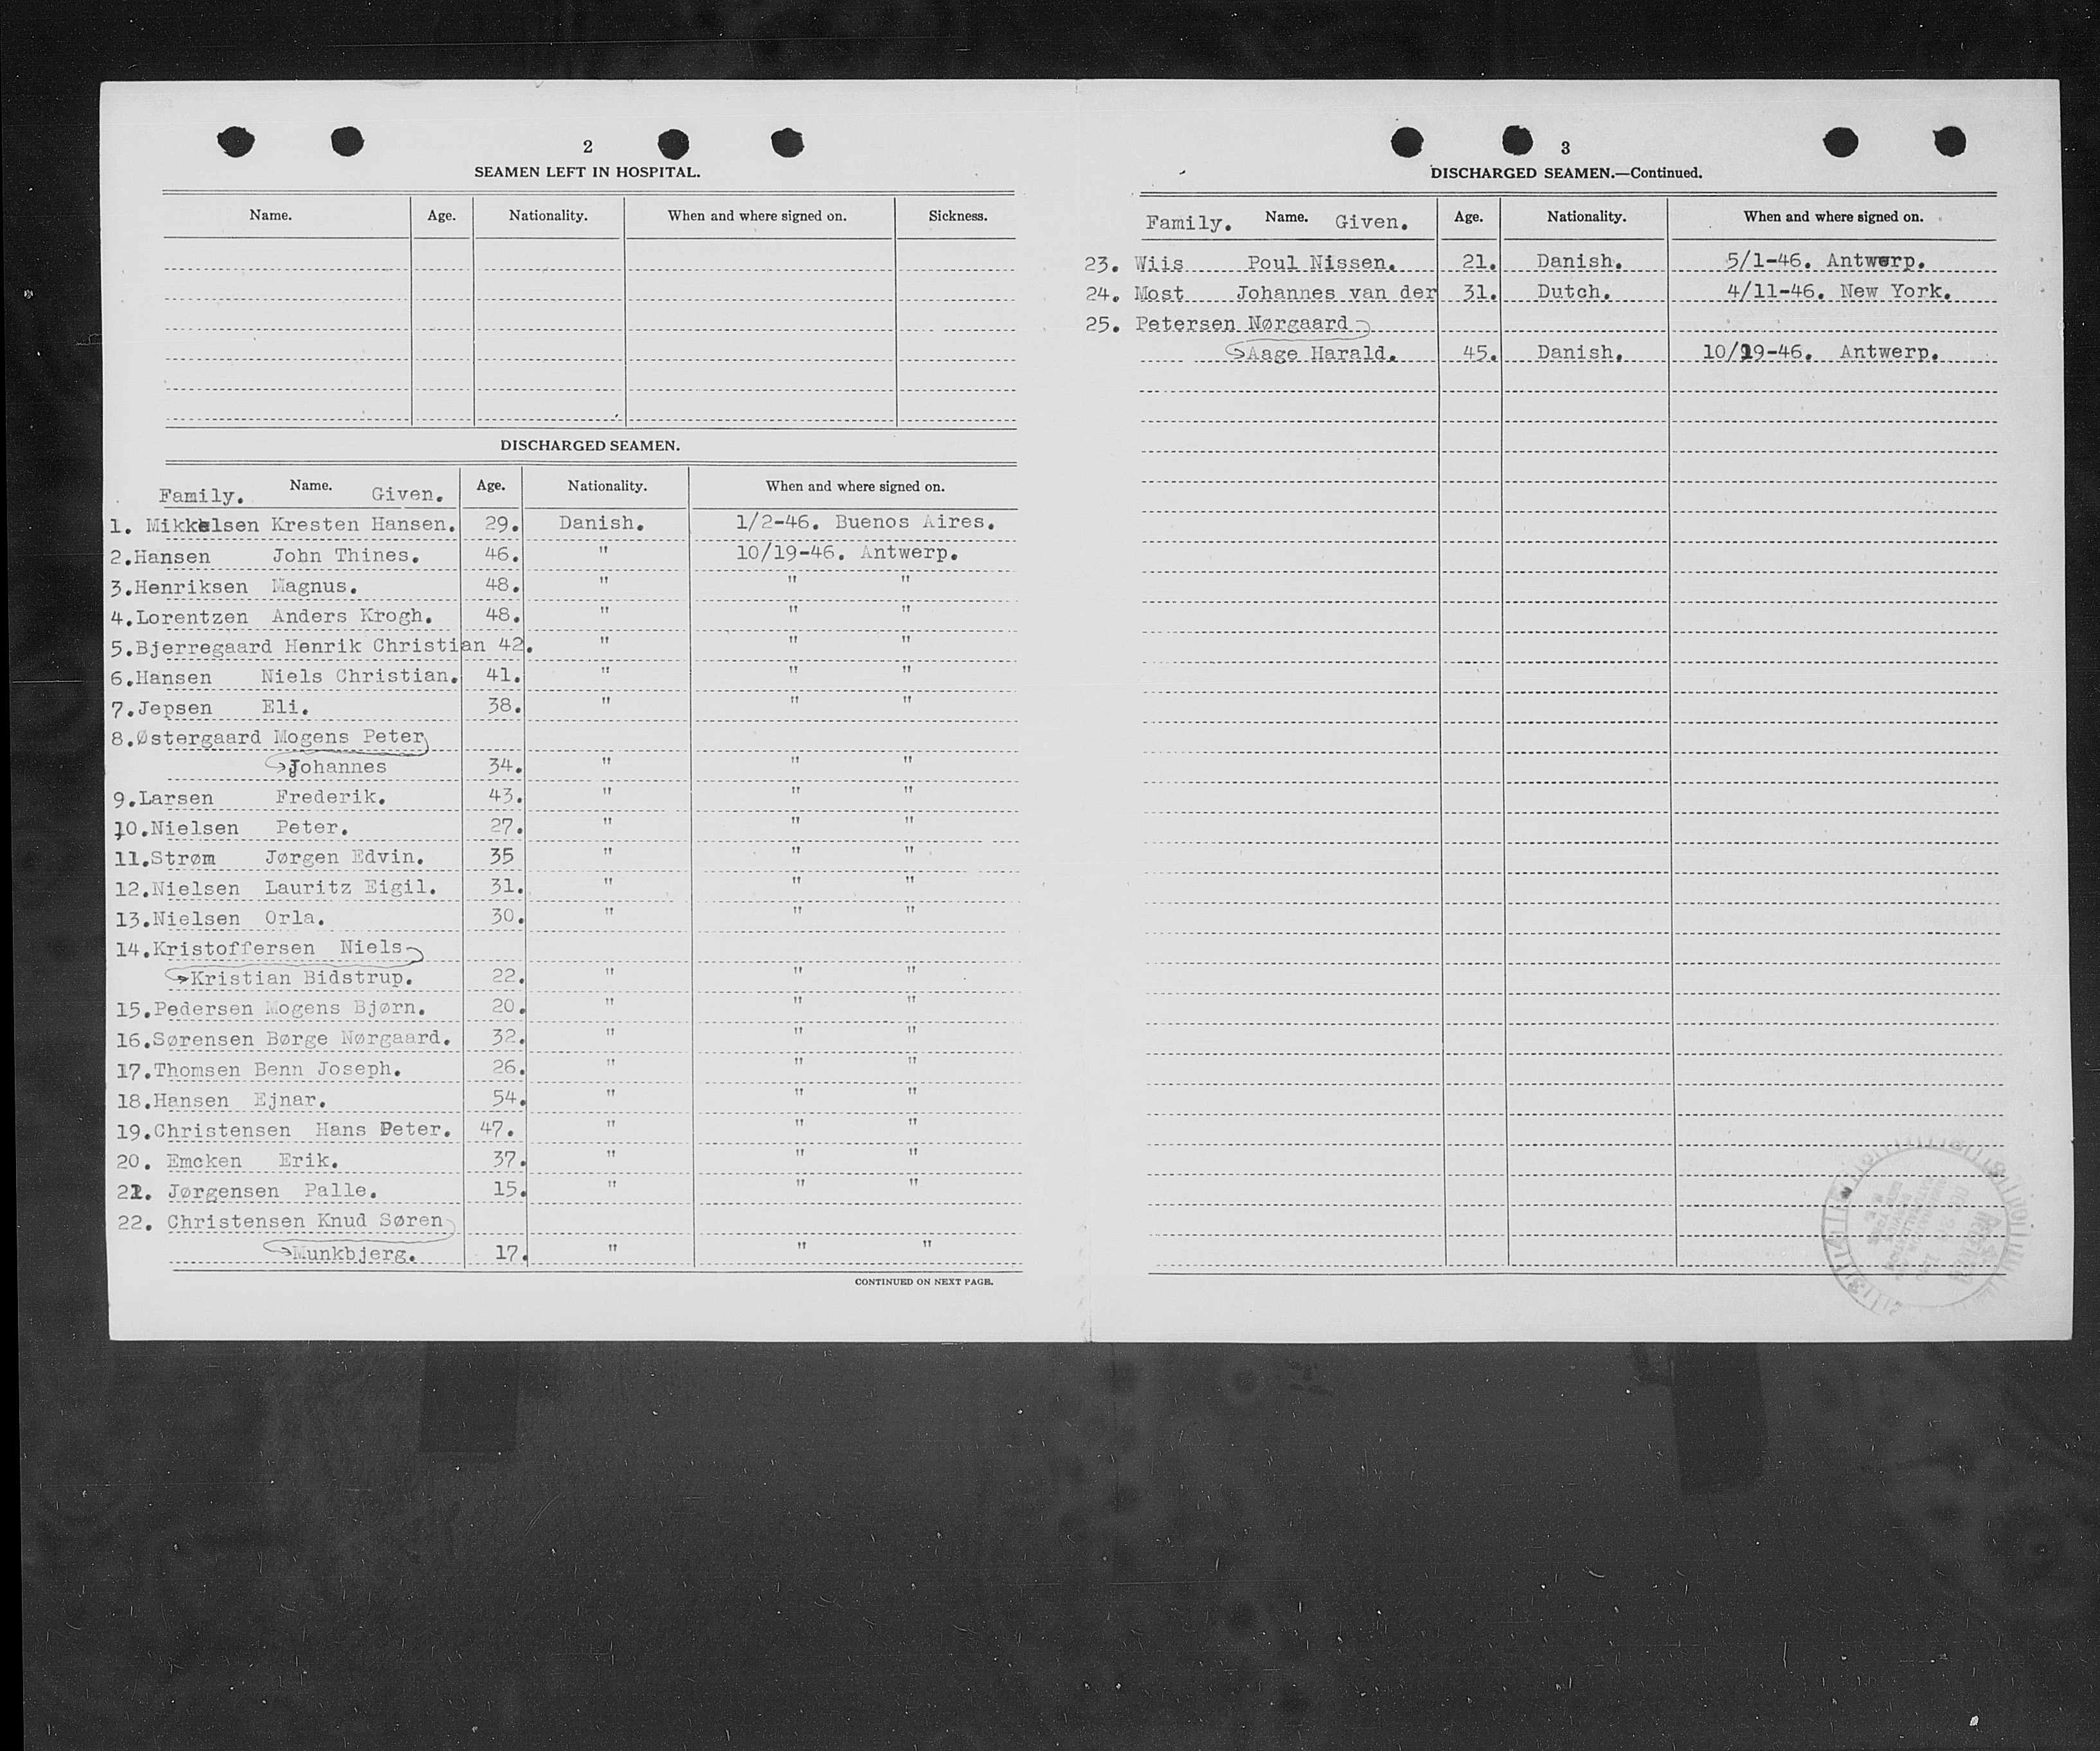 2
SEAMEN LEFT IN HOSPITAL.
Name. Age. Nationality. When and where signed on. Sickness.
DISCHARGED SEAMEN.
Family. Name. Given. Age. Nationality. When and where signed on.
1. Mikkelsen Kresten Hansen. 29. Danish. 1/2-46. Buenos Aires.
2.Hansen John Thines. 46. " 10/19-46. Antwerp.
3.Henriksen Magnus. 48. " " "
4.Lorentzen Anders Krogh. 48. " " "
5.Bjerregaard Henrik Christian 42. " " "
6.Hansen Niels Christian. 41. " " "
7.Jepsen Eli. 38. " " "
8.Østergaard Mogens Peter
Johannes 34. " " "
9.Larsen Frederik. 43. " " "
10.Nielsen Peter. 27. " " "
11.Strøm Jørgen Edvin. 35 " " "
12.Nielsen Lauritz Eigil. 31. " " "
13.Nielsen Orla. 30. " " "
14.Kristoffersen Niels
Kristian Bidstrup. 22. " " "
15.Pedersen Mogens Bjørn. 20. " " "
16.Sørensen Børge Nørgaard. 32. " " "
17.Thomsen Benn Joseph. 26. " " "
18.Hansen Ejnar. 54. " " "
19.Christensen Hans Peter. 47. " " "
20. Emcken Erik. 37. " " "
21. Jørgensen Palle. 15. " " "
22. Christensen Knud Søren
Munkbjerg. 17. " " "
CONTINUED ON NEXT PAGE.
3
DISCHARGED SEAMEN.—Continued.
Family. Name. Given. Age. Nationality. When and where signed on.
23. Wiis Poul Nissen. 21. Danish. 5/1-46. Antwerp.
24. Most Johannes van der 31. Dutch. 4/11-46. New York.
25. Petersen Nørgaard
Aage Harald. 45. Danish. 10/19-46. Antwerp.